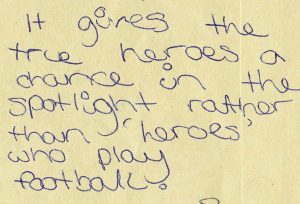 It gives the
true heroes a
chance in the
spotlight rather
than 'heroes'
who play
football.